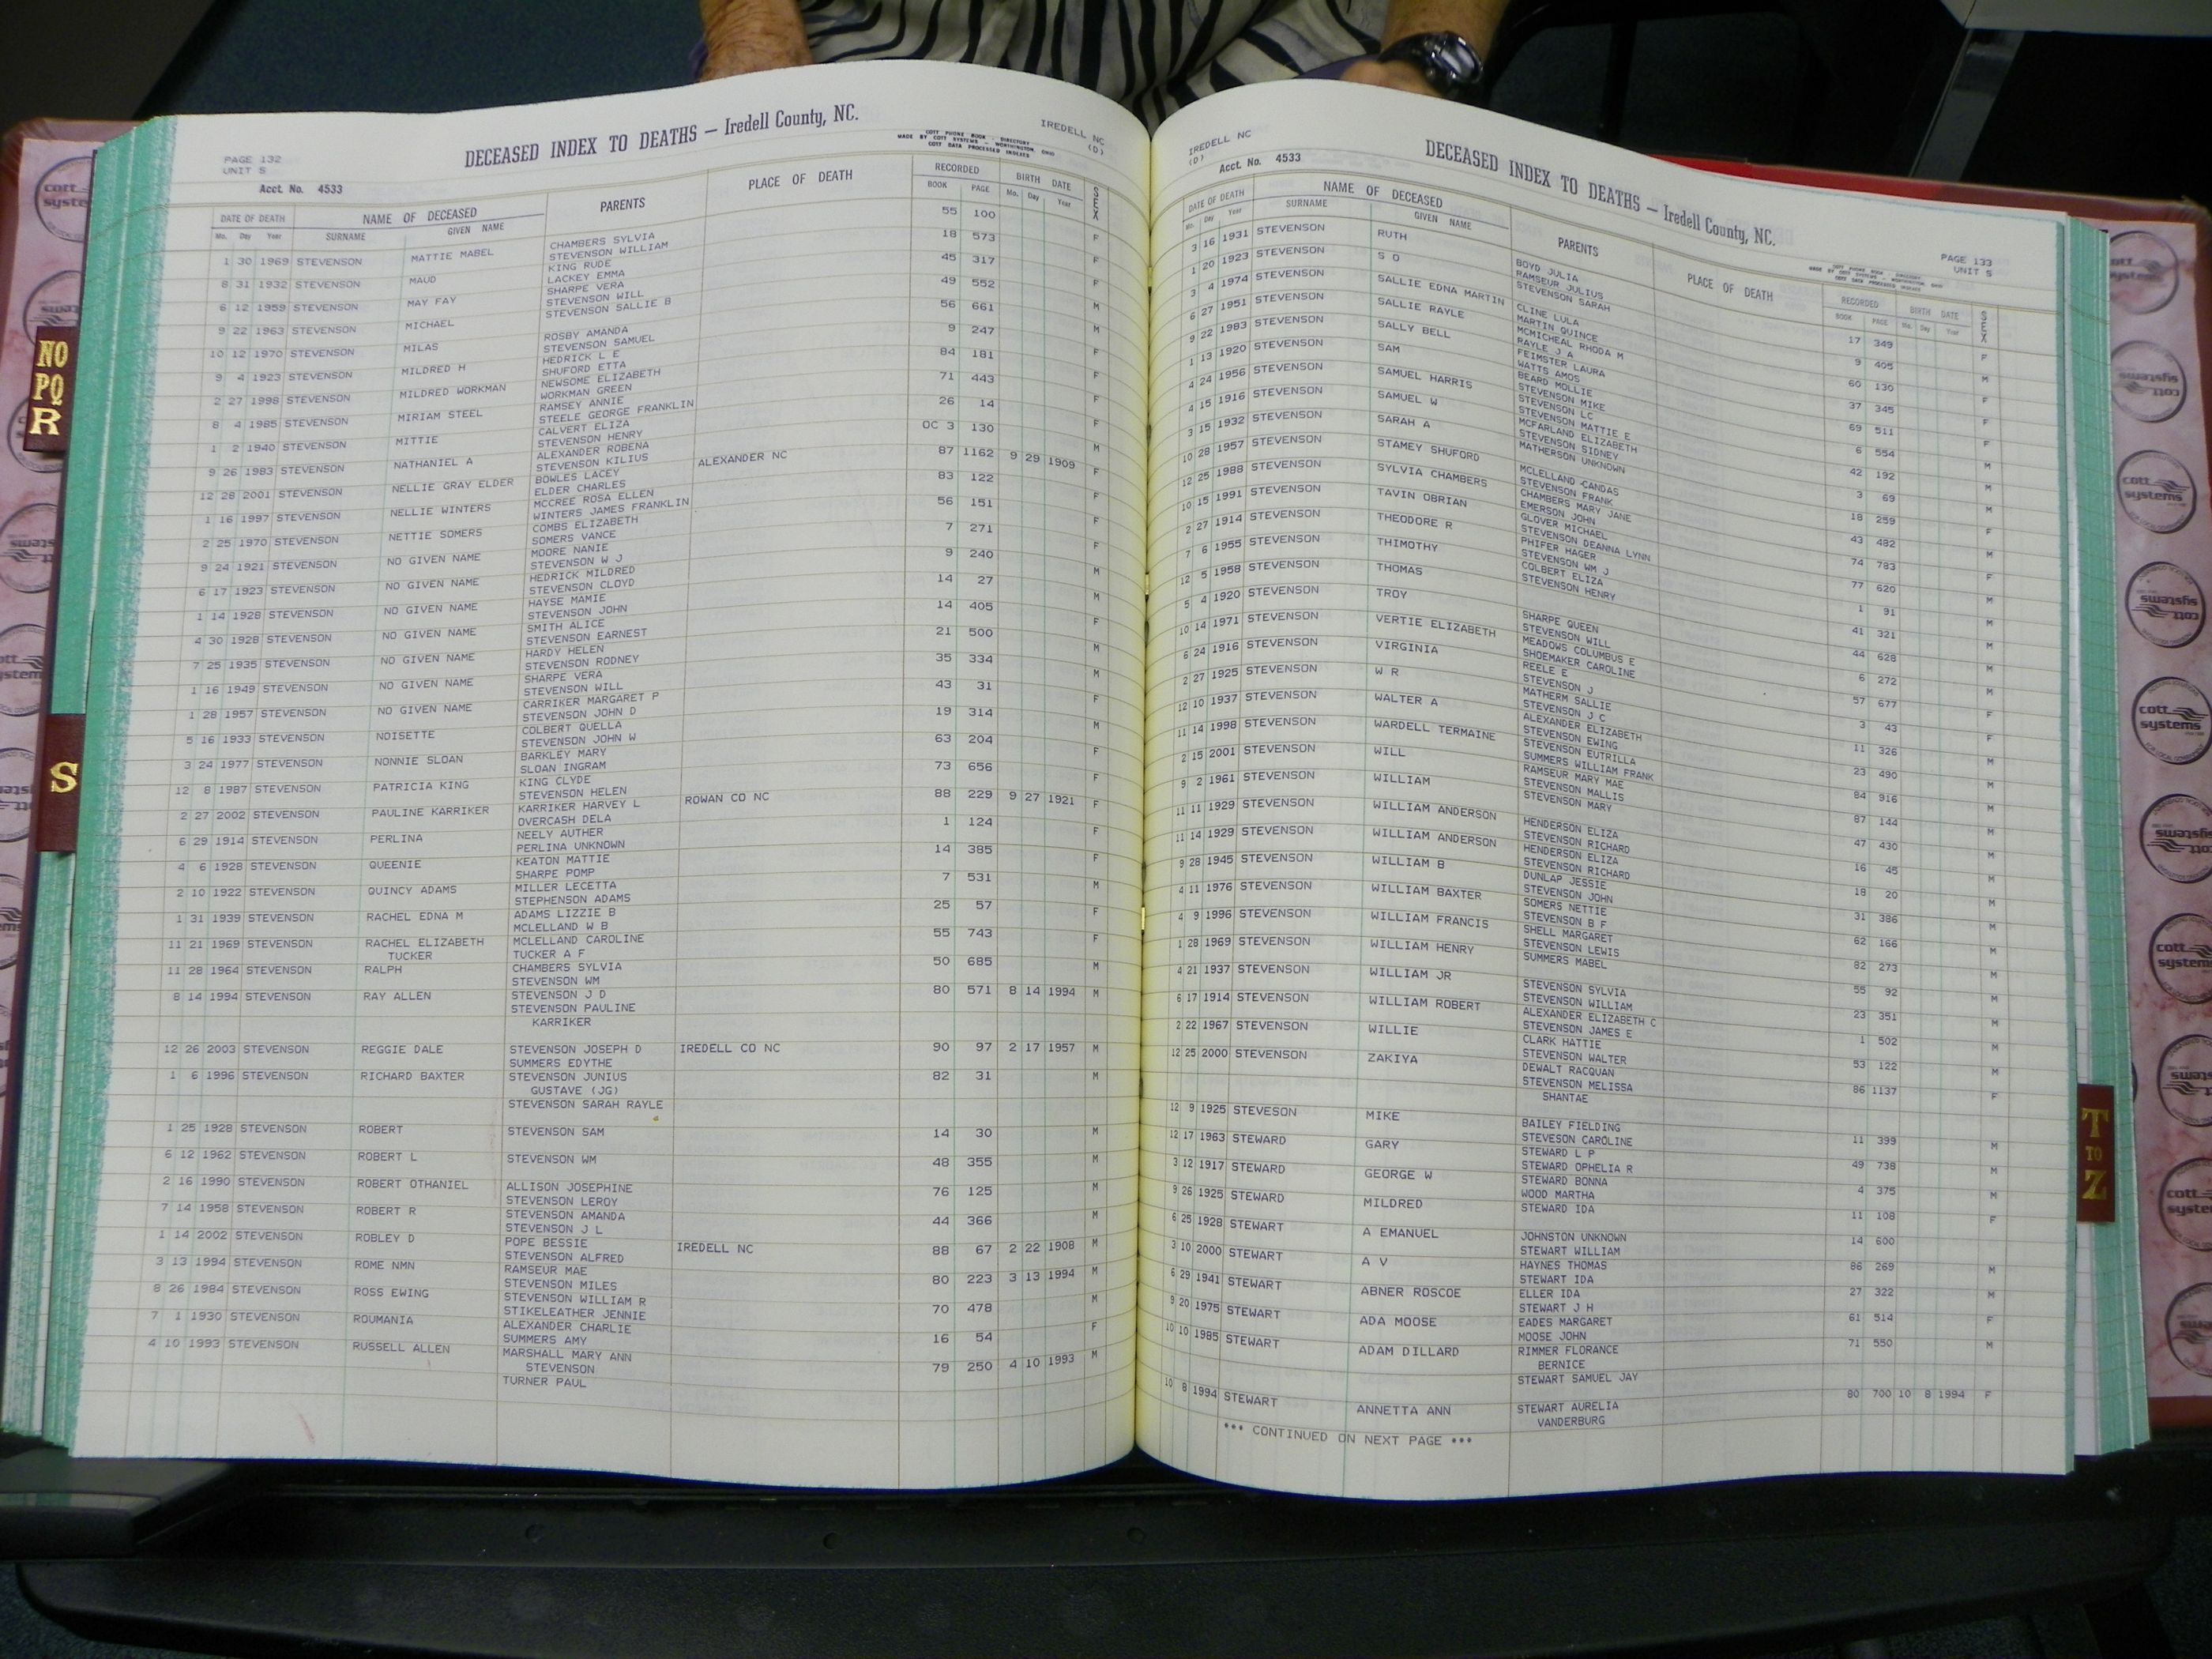 PAGE 132
UNIT S
DECEASED INDEX TO DEATHS — Iredell County, NC.
COTT PHONE BOOK - DIRECTORY
MADE BY COTT SYSTEMS - WORTHINGTON, OHIO
COTT DATA PROCESSED INDEXES
IREDELL NC
(D)
Acct. No. 4533
DATE OF DEATH NAME OF DECEASED PARENTS PLACE OF DEATH RECORDED BIRTH DATE SEX
Mo. Day Year SURNAME GIVEN NAME BOOK PAGE Mo. Day Year
1 30 1969 STEVENSON MATTIE MABEL CHAMBERS SYLVIA 55 100 F
STEVENSON WILLIAM
8 31 1932 STEVENSON MAUD KING RUDE 18 573 F
LACKEY EMMA
6 12 1959 STEVENSON MAY FAY SHARPE VERA 45 317 F
STEVENSON WILL
9 22 1963 STEVENSON MICHAEL STEVENSON SALLIE B 49 552 M
10 12 1970 STEVENSON MILAS ROSBY AMANDA 56 661 M
STEVENSON SAMUEL
9 4 1923 STEVENSON MILDRED H HEDRICK L E 9 247 F
SHUFORD ETTA
2 27 1998 STEVENSON MILDRED WORKMAN NEWSOME ELIZABETH 84 181 F
WORKMAN GREEN
8 4 1985 STEVENSON MIRIAM STEEL RAMSEY ANNIE 71 443 F
STEELE GEORGE FRANKLIN
1 2 1940 STEVENSON MITTIE CALVERT ELIZA 26 14 F
STEVENSON HENRY
9 26 1983 STEVENSON NATHANIEL A ALEXANDER ROBENA OC 3 130 M
STEVENSON KILIUS
12 28 2001 STEVENSON NELLIE GRAY ELDER BOWLES LACEY ALEXANDER NC 87 1162 9 29 1909 F
ELDER CHARLES
1 16 1997 STEVENSON NELLIE WINTERS MCCREE ROSA ELLEN 83 122 F
WINTERS JAMES FRANKLIN
2 25 1970 STEVENSON NETTIE SOMERS COMBS ELIZABETH 56 151 F
SOMERS VANCE
9 24 1921 STEVENSON NO GIVEN NAME MOORE NANIE 7 271 F
STEVENSON W J
6 17 1923 STEVENSON NO GIVEN NAME HEDRICK MILDRED 9 240 M
STEVENSON CLOYD
1 14 1928 STEVENSON NO GIVEN NAME HAYSE MAMIE 14 27 M
STEVENSON JOHN
4 30 1928 STEVENSON NO GIVEN NAME SMITH ALICE 14 405 F
STEVENSON EARNEST
7 25 1935 STEVENSON NO GIVEN NAME HARDY HELEN 21 500 M
STEVENSON RODNEY
1 16 1949 STEVENSON NO GIVEN NAME SHARPE VERA 35 334 M
STEVENSON WILL
1 28 1957 STEVENSON NO GIVEN NAME CARRIKER MARGARET P 43 31 F
STEVENSON JOHN D
5 16 1933 STEVENSON NOISETTE COLBERT QUELLA 19 314 M
STEVENSON JOHN W
3 24 1977 STEVENSON NONNIE SLOAN BARKLEY MARY 63 204 F
SLOAN INGRAM
12 8 1987 STEVENSON PATRICIA KING KING CLYDE 73 656 F
STEVENSON HELEN
2 27 2002 STEVENSON PAULINE KARRIKER KARRIKER HARVEY L ROWAN CO NC 88 229 9 27 1921 F
OVERCASH DELA
6 29 1914 STEVENSON PERLINA NEELY AUTHER 1 124 F
PERLINA UNKNOWN
4 6 1928 STEVENSON QUEENIE KEATON MATTIE 14 385 F
SHARPE POMP
2 10 1922 STEVENSON QUINCY ADAMS MILLER LECETTA 7 531 M
STEPHENSON ADAMS
1 31 1939 STEVENSON RACHEL EDNA M ADAMS LIZZIE B 25 57 F
MCLELLAND W B
11 21 1969 STEVENSON RACHEL ELIZABETH MCLELLAND CAROLINE 55 743 F
TUCKER TUCKER A F
11 28 1964 STEVENSON RALPH CHAMBERS SYLVIA 50 685 M
STEVENSON WM
8 14 1994 STEVENSON RAY ALLEN STEVENSON J D 80 571 8 14 1994 M
STEVENSON PAULINE
KARRIKER
12 26 2003 STEVENSON REGGIE DALE STEVENSON JOSEPH D IREDELL CO NC 90 97 2 17 1957 M
SUMMERS EDYTHE
1 6 1996 STEVENSON RICHARD BAXTER STEVENSON JUNIUS 82 31 M
GUSTAVE (JG)
STEVENSON SARAH RAYLE
1 25 1928 STEVENSON ROBERT STEVENSON SAM 14 30 M
6 12 1962 STEVENSON ROBERT L STEVENSON WM 48 355 M
2 16 1990 STEVENSON ROBERT OTHANIEL ALLISON JOSEPHINE 76 125 M
STEVENSON LEROY
7 14 1958 STEVENSON ROBERT R STEVENSON AMANDA 44 366 M
STEVENSON J L
1 14 2002 STEVENSON ROBLEY D POPE BESSIE IREDELL NC 88 67 2 22 1908 M
STEVENSON ALFRED
3 13 1994 STEVENSON ROME NMN RAMSEUR MAE 80 223 3 13 1994 M
STEVENSON MILES
8 26 1984 STEVENSON ROSS EWING STEVENSON WILLIAM R 70 478 M
STIKELEATHER JENNIE
7 1 1930 STEVENSON ROUMANIA ALEXANDER CHARLIE 16 54 F
SUMMERS AMY
4 10 1993 STEVENSON RUSSELL ALLEN MARSHALL MARY ANN 79 250 4 10 1993 M
STEVENSON
TURNER PAUL
IREDELL NC
(D)
DECEASED INDEX TO DEATHS — Iredell County, NC.
COTT PHONE BOOK - DIRECTORY
MADE BY COTT SYSTEMS - WORTHINGTON, OHIO
COTT DATA PROCESSED INDEXES
PAGE 133
UNIT S
Acct. No. 4533
DATE OF DEATH NAME OF DECEASED PARENTS PLACE OF DEATH RECORDED BIRTH DATE SEX
Mo. Day Year SURNAME GIVEN NAME BOOK PAGE Mo. Day Year
3 16 1931 STEVENSON RUTH BOYD JULIA 17 349 F
RAMSEUR JULIUS
1 20 1923 STEVENSON S O STEVENSON SARAH 9 405 M
3 4 1974 STEVENSON SALLIE EDNA MARTIN CLINE LULA 60 130 F
MARTIN QUINCE
6 27 1951 STEVENSON SALLIE RAYLE MCMICHEAL RHODA M 37 345 F
RAYLE J A
9 22 1983 STEVENSON SALLY BELL FEIMSTER LAURA 69 511 F
WATTS AMOS
1 13 1920 STEVENSON SAM BEARD MOLLIE 6 554 M
STEVENSON MIKE
4 24 1956 STEVENSON SAMUEL HARRIS STEVENSON LC 42 192 M
STEVENSON MATTIE E
4 15 1916 STEVENSON SAMUEL W MCFARLAND ELIZABETH 3 69 M
STEVENSON SIDNEY
3 15 1932 STEVENSON SARAH A MATHERSON UNKNOWN 18 259 F
10 28 1957 STEVENSON STAMEY SHUFORD MCLELLAND CANDAS 43 482 M
STEVENSON FRANK
12 25 1988 STEVENSON SYLVIA CHAMBERS CHAMBERS MARY JANE 74 783 F
EMERSON JOHN
10 15 1991 STEVENSON TAVIN OBRIAN GLOVER MICHAEL 77 620 M
STEVENSON DEANNA LYNN
2 27 1914 STEVENSON THEODORE R PHIFER HAGER 1 91 M
STEVENSON WM J
7 6 1955 STEVENSON THIMOTHY COLBERT ELIZA 41 321 M
STEVENSON HENRY
12 5 1958 STEVENSON THOMAS 44 628 M
5 4 1920 STEVENSON TROY SHARPE QUEEN 6 272 M
STEVENSON WILL
10 14 1971 STEVENSON VERTIE ELIZABETH MEADOWS COLUMBUS E 57 677 F
SHOEMAKER CAROLINE
6 24 1916 STEVENSON VIRGINIA REELE E 3 43 F
STEVENSON J
2 27 1925 STEVENSON W R MATHERM SALLIE 11 326 M
STEVENSON J C
12 10 1937 STEVENSON WALTER A ALEXANDER ELIZABETH 23 490 M
STEVENSON EWING
11 14 1998 STEVENSON WARDELL TERMAINE STEVENSON EUTRILLA 84 916 M
SUMMERS WILLIAM FRANK
2 15 2001 STEVENSON WILL RAMSEUR MARY MAE 87 144 M
STEVENSON MALLIS
9 2 1961 STEVENSON WILLIAM STEVENSON MARY 47 430 M
11 11 1929 STEVENSON WILLIAM ANDERSON HENDERSON ELIZA 16 45 M
STEVENSON RICHARD
11 14 1929 STEVENSON WILLIAM ANDERSON HENDERSON ELIZA 18 20 M
STEVENSON RICHARD
9 28 1945 STEVENSON WILLIAM B DUNLAP JESSIE 31 386 M
STEVENSON JOHN
4 11 1976 STEVENSON WILLIAM BAXTER SOMERS NETTIE 62 166 M
STEVENSON B F
4 9 1996 STEVENSON WILLIAM FRANCIS SHELL MARGARET 82 273 M
STEVENSON LEWIS
1 28 1969 STEVENSON WILLIAM HENRY SUMMERS MABEL 55 92 M
4 21 1937 STEVENSON WILLIAM JR STEVENSON SYLVIA 23 351 M
STEVENSON WILLIAM
6 17 1914 STEVENSON WILLIAM ROBERT ALEXANDER ELIZABETH C 1 502 M
STEVENSON JAMES E
2 22 1967 STEVENSON WILLIE CLARK HATTIE 53 122
STEVENSON WALTER
12 25 2000 STEVENSON ZAKIYA DEWALT RACQUAN 86 1137 F
STEVENSON MELISSA
SHANTAE
12 9 1925 STEVESON MIKE BAILEY FIELDING 11 399 M
STEVESON CAROLINE
12 17 1963 STEWARD GARY STEWARD L P 49 738 M
STEWARD OPHELIA R
3 12 1917 STEWARD GEORGE W STEWARD BONNA 4 375 M
WOOD MARTHA
9 26 1925 STEWARD MILDRED STEWARD IDA 11 108 F
6 25 1928 STEWART A EMANUEL JOHNSTON UNKNOWN 14 600 M
STEWART WILLIAM
3 10 2000 STEWART A V HAYNES THOMAS 86 269 M
STEWART IDA
6 29 1941 STEWART ABNER ROSCOE ELLER IDA 27 322 M
STEWART J H
9 20 1975 STEWART ADA MOOSE EADES MARGARET 61 514 F
MOOSE JOHN
10 10 1985 STEWART ADAM DILLARD RIMMER FLORANCE 71 550 M
BERNICE
STEWART SAMUEL JAY
10 8 1994 STEWART ANNETTA ANN STEWART AURELIA 80 700 10 8 1994 F
VANDERBURG
*** CONTINUED ON NEXT PAGE ***
NO
PQ
R
S
T
TO
Z
cott
systems